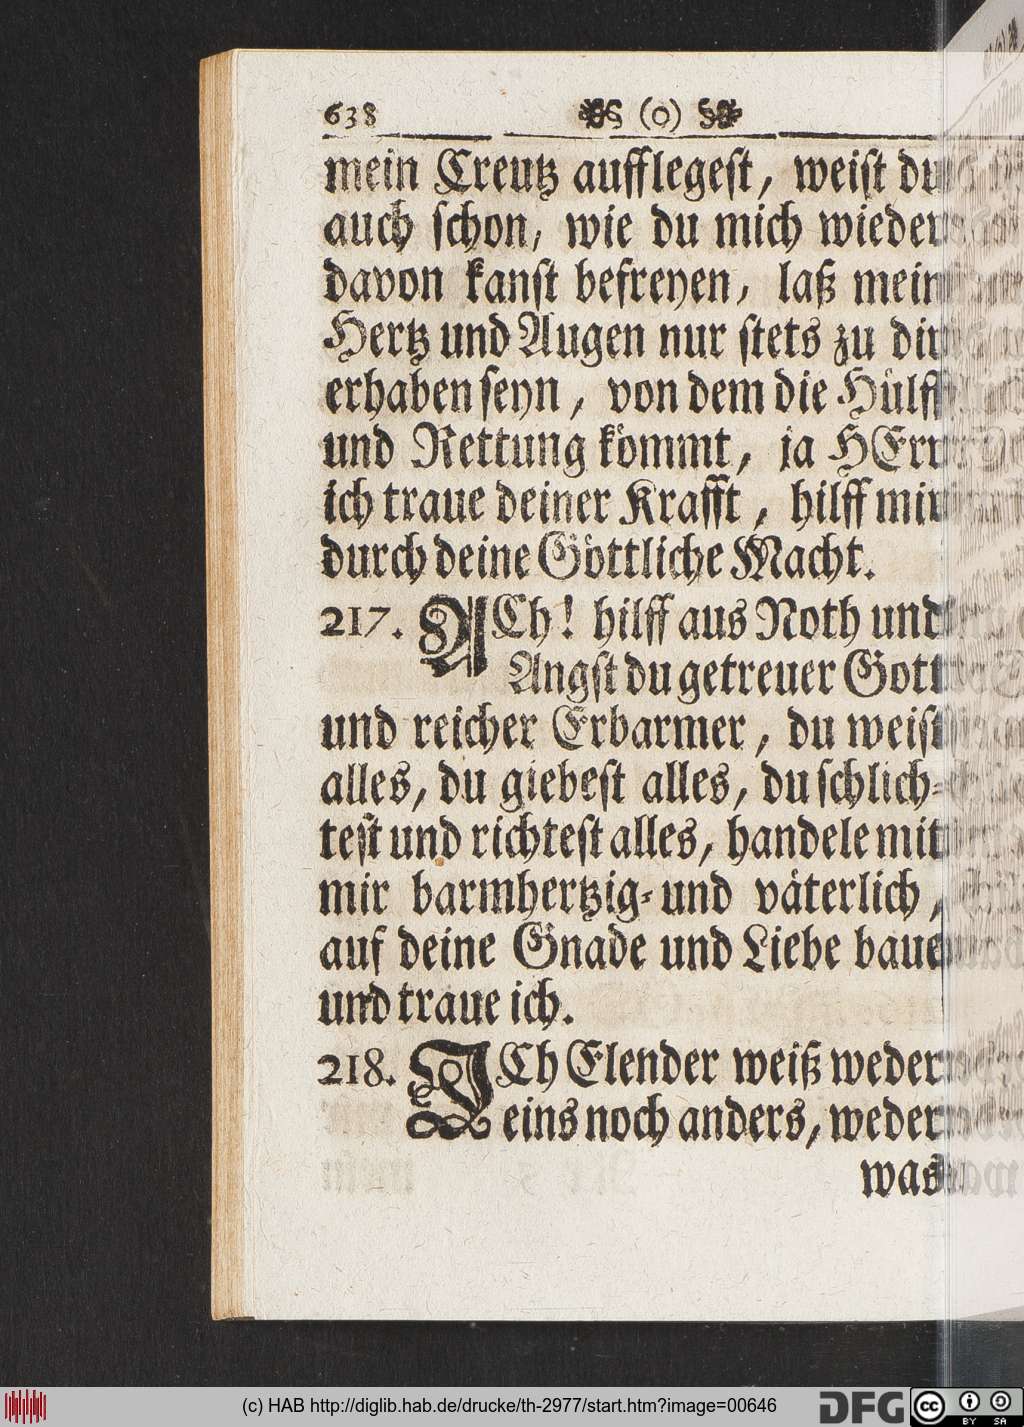 638 (o)
mein Creutz aufflegest, weist du
auch schon, wie du mich wieder
davon kanst befreyen, laß mein
Hertz und Augen nur stets zu dir
erhaben seyn, von dem die Hülff
und Rettung kömmt, ja HErr
ich traue deiner Krafft, hilff mir
durch deine Göttliche Macht.
217. ACh! hilff aus Noth und
Angst du getreuer Gott
und reicher Erbarmer, du weist
alles, du giebest alles, du schlich-
test und richtest alles, handele mit
mir barmhertzig- und väterlich,
auf deine Gnade und Liebe baue
und traue ich.
218. ICh Elender weiß weder
eins noch anders, weder
was
(c) HAB http://diglib.hab.de/drucke/th-2977/start.htm?image=00646
DFG
cc BY SA